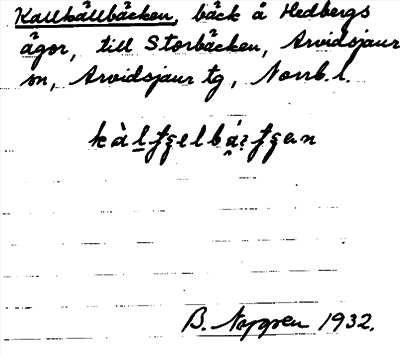 Kallkällbäcken, bäck å Hedbergs
ägor, till Storbäcken, Arvidsjaur
sn, Arvidsjaur tg, Norrb. l.
B. Norgren 1932.